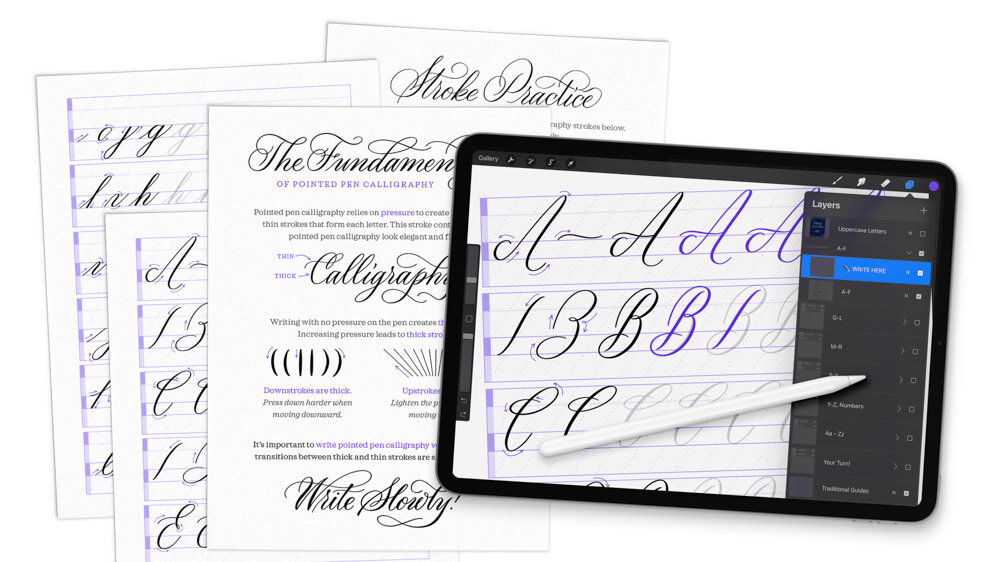 Stroke Practice
graphy strokes below.
The Fundamen
OF POINTED PEN CALLIGRAPHY
Pointed pen calligraphy relies on pressure to create
thin strokes that form each letter. This stroke cont
pointed pen calligraphy look elegant and f
THIN
THICK
Calligraphy
Writing with no pressure on the pen creates
Increasing pressure leads to thick stro
Downstrokes are thick.
Press down harder when
moving downward.
Upstrokes
Lighten the p
moving
It's important to write pointed pen calligraphy
transitions between thick and thin strokes are s
Write Slowly!
o y g g
h h h
A
B
C C
E E
Gallery
A A A A
B B B B
C C C C C
Layers
Uppercase Letters N
A-F
WRITE HERE N
A-F N
G-L
M-R
Y-Z, Numbers
Aa - Zz
Your Turn!
Traditional Guides N